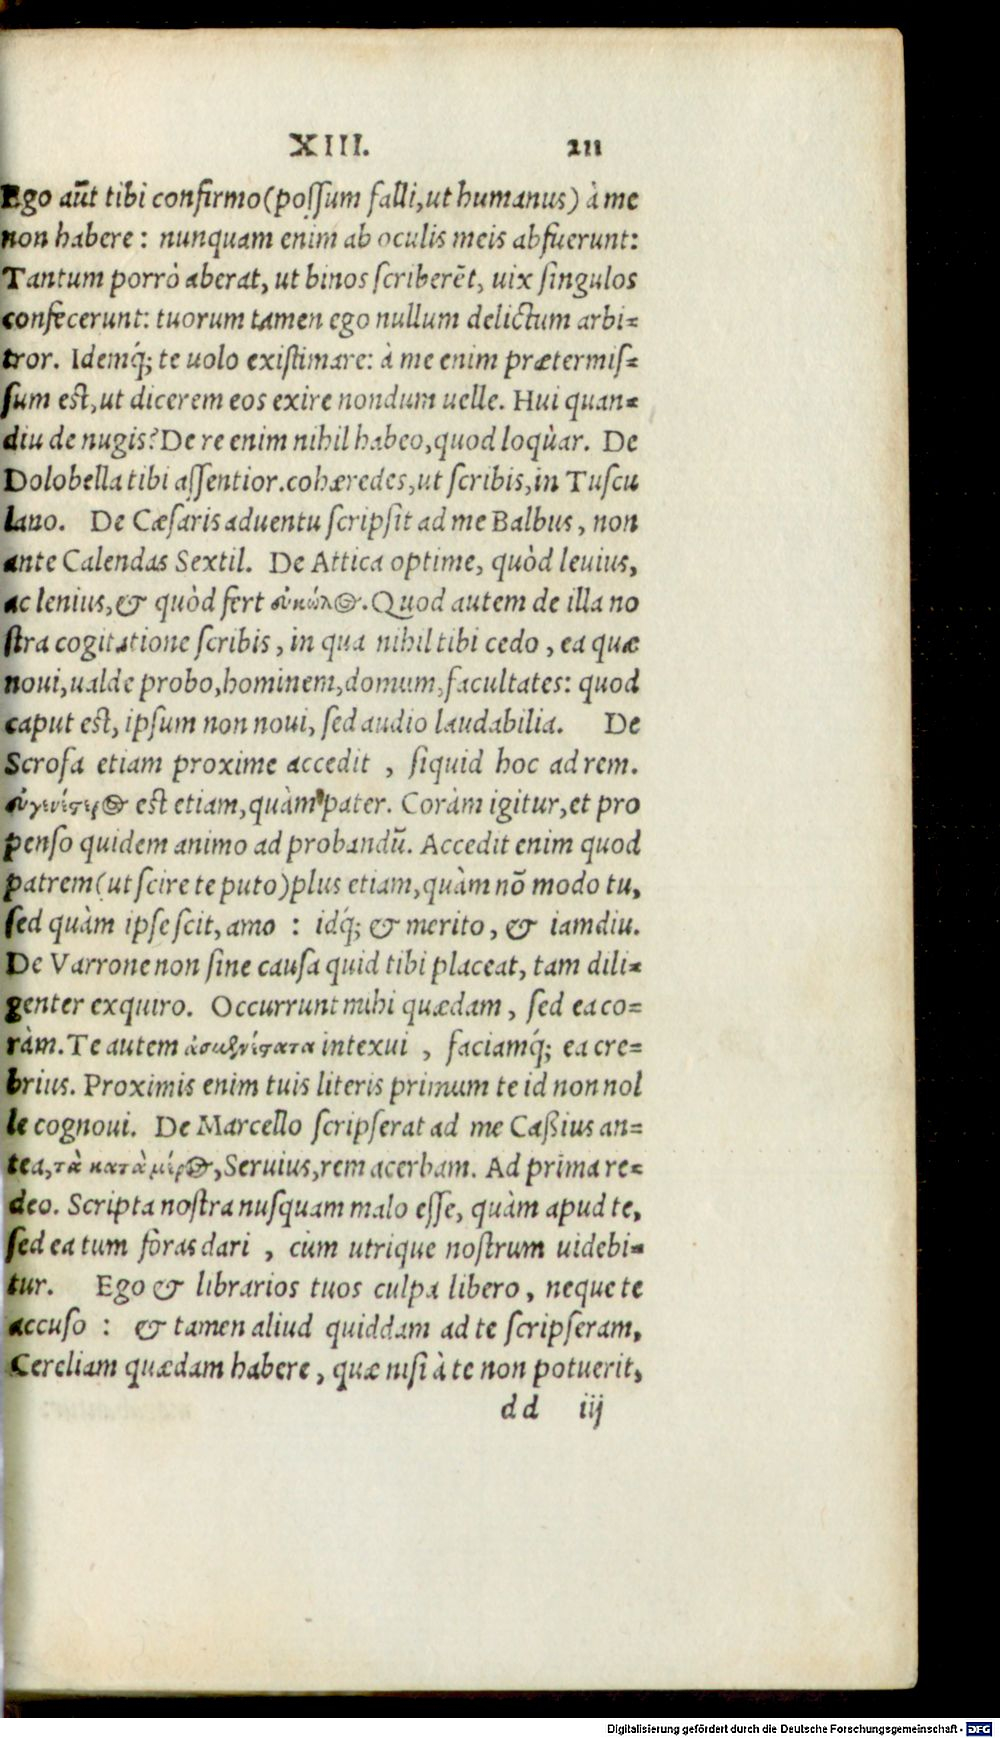 XIII. 211
Ego aūt tibi confirmo(poſſum falli,ut humanus) à me
non habere: nunquam enim ab oculis meis abfuerunt:
Tantum porrò aberat, ut binos ſcriberēt, uix ſingulos
confecerunt: tuorum tamen ego nullum delictum arbi=
tror. Idemq́; te uolo exiſtimare: à me enim prætermiſ=
ſum eſt,ut dicerem eos exire nondum uelle. Hui quan=
diu de nugis? De re enim nihil habeo,quod loquàr. De
Dolobella tibi aſſentior.cohæredes,ut ſcribis,in Tuſcu
lano. De Cæſaris aduentu ſcripſit ad me Balbus, non
ante Calendas Sextil. De Attica optime, quòd leuius,
ac lenius,& quòd fert. Quod autem de illa no
ſtra cogitatione ſcribis, in qua nihil tibi cedo, ea quæ
noui,ualde probo,hominem,domum,facultates: quod
caput eſt, ipſum non noui, ſed audio laudabilia. De
Scrofa etiam proxime accedit, ſiquid hoc ad rem.
est etiam,quàm pater. Coràm igitur,et pro
penſo quidem animo ad probandū. Accedit enim quod
patrem(ut ſcire te puto)plus etiam,quàm nō modo tu,
ſed quàm ipſe ſcit, amo: idq́; & merito, & iamdiu.
De Varrone non ſine cauſa quid tibi placeat, tam dili=
genter exquiro. Occurrunt mihi quædam, ſed ea co=
ràm. Te autem intexui, faciamq́; ea cre=
brius. Proximis enim tuis literis primum te id non nol
le cognoui. De Marcello ſcripſerat ad me Caßius an=
tea,τὰ κατὰ μέρος,Seruius,rem acerbam. Ad prima re=
deo. Scripta noſtra nuſquam malo eſſe, quàm apud te,
ſed ea tum foras dari, cùm utrique noſtrum uidebi=
tur. Ego & librarios tuos culpa libero, neque te
accuſo: & tamen aliud quiddam ad te ſcripſeram,
Cereliam quædam habere, quæ niſi à te non potuerit,
dd iij
Digitalisierung gefördert durch die Deutsche Forschungsgemeinschaft - DFG